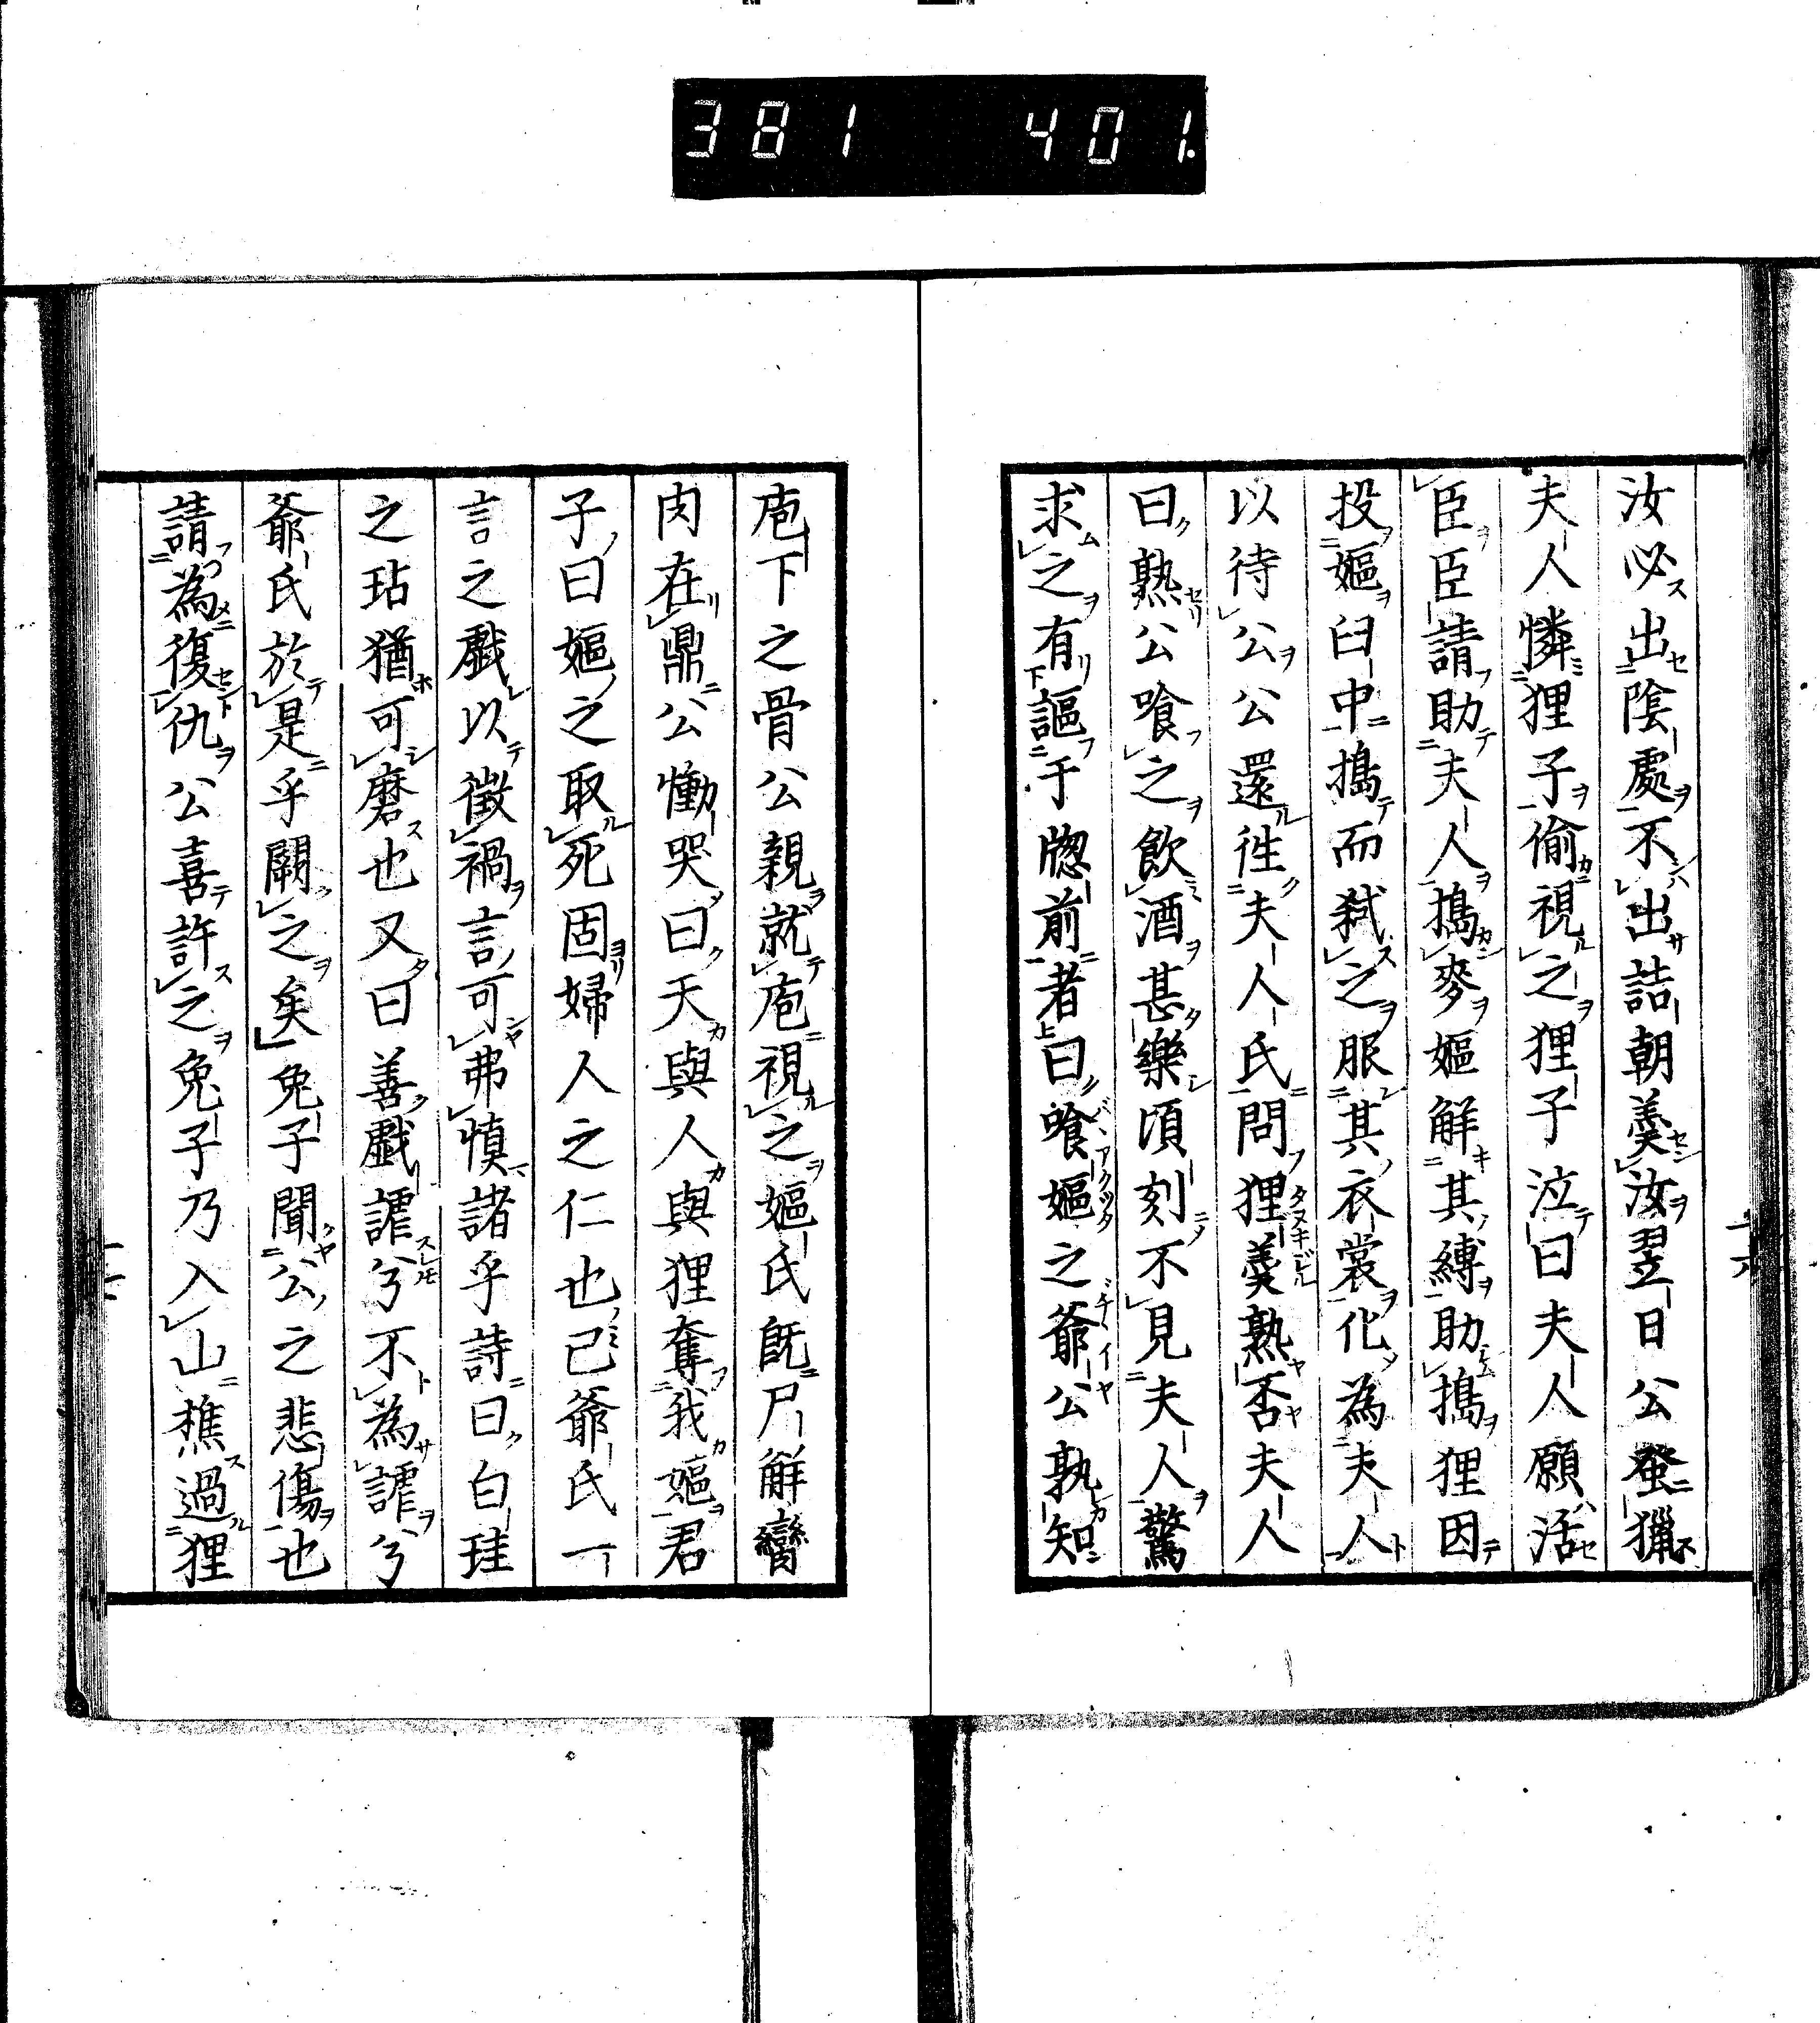 381 401.
汝必出陰處不出詰朝羹汝翌日公發獵
夫人憐狸子偷視之狸子泣曰夫人願活
臣臣請助夫人搗麥嫗解其縛助搗狸因
投嫗臼中搗而弒之服其衣裳化為夫人
以待公公還徃夫人氏問狸羹熟否夫人
曰熟公喰之飲酒甚樂頃刻不見夫人驚
求之有謳于牕前者曰喰嫗之爺公孰知
庖下之骨公親就庖視之嫗氏既尸解臠
肉在鼎公慟哭曰天與人與狸奪我嫗君
子曰嫗之取死固婦人之仁也已爺氏一
言之戲以徵禍言可弗慎諸乎詩曰白珪
之玷猶可磨也又曰善戲謔兮不為謔兮
爺氏於是乎闕之矣兔子聞公之悲傷也
請為復仇公喜許之兔子乃入山樵過狸